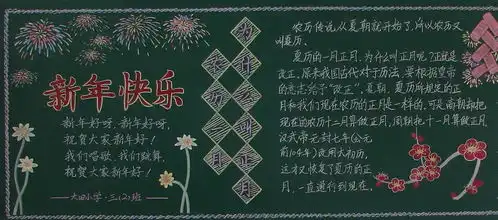 新年快乐
新年好呀,新年好呀,
祝贺大家新年好!
我们唱歌,我们跳舞,
祝贺大家新年好!
——大田小学·三(2)班
为什么叫正月
农历
农历传说从夏朝就开始了,所以农历又
叫夏历。
夏历的一月正月,为什么叫正月呢?正就是
改正,原来我国古代对于历法,要根据皇帝
的意志给予“改正”,夏朝,夏历所规定的正
月和我们现在农历的正月是一样的,可是商朝却把
现在的农历十二月算做正月,周朝把十一月算做正月
汉武帝元封七年(公元
前104年)改用太初历,
这才又恢复了夏历的正
月,一直通行到现在,